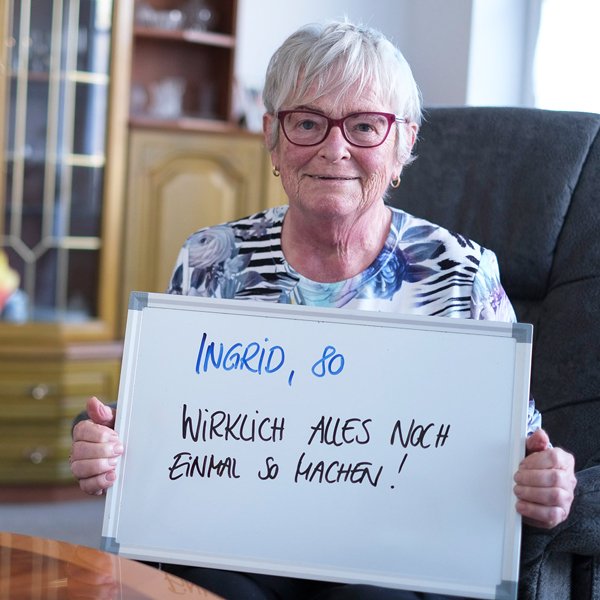 INGRID, 80
WIRKLICH ALLES NOCH
EINMAL SO MACHEN!